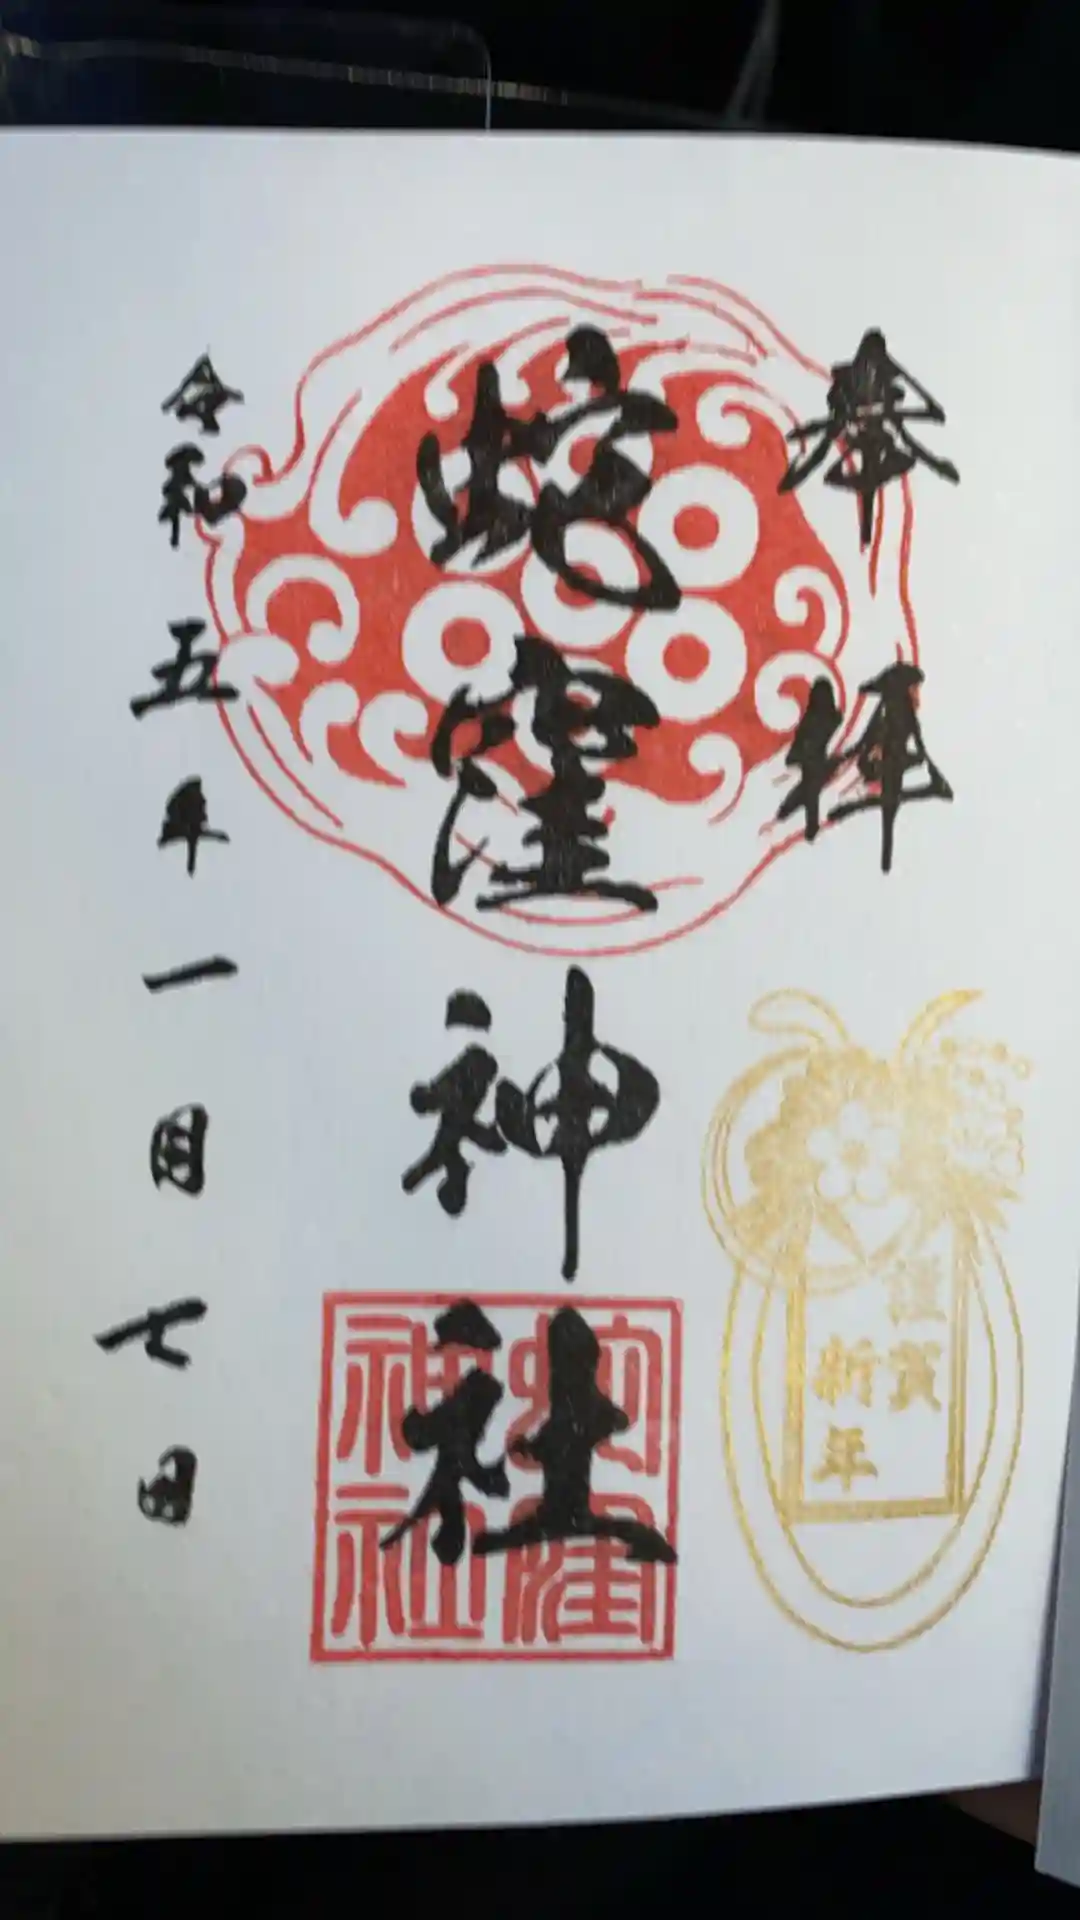 奉拝
蛇窪神社
蛇窪
神社
謹賀
新年
令和五年一月七日